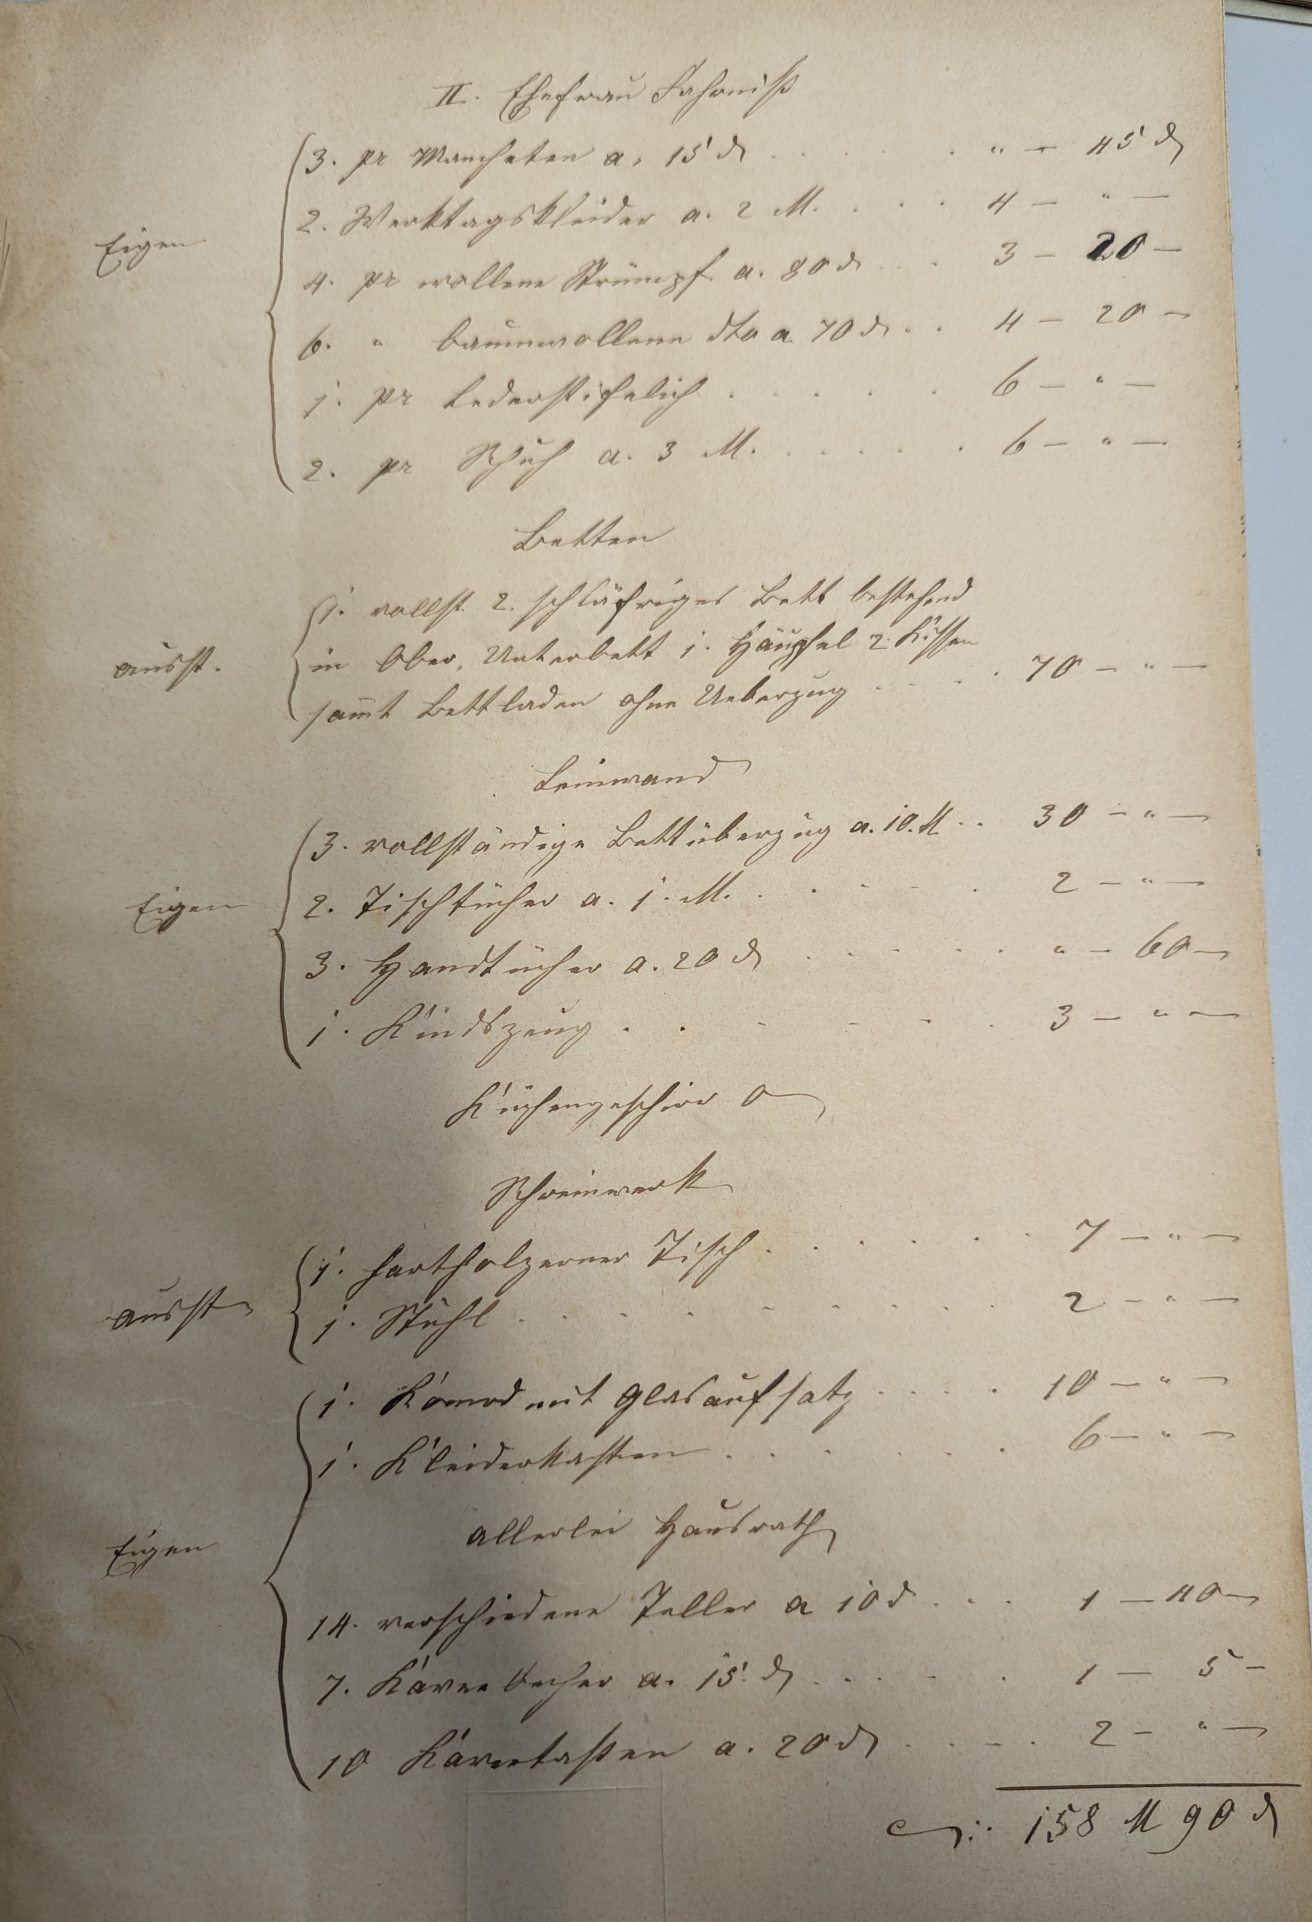 II. Ehefrau Fahrniß
3. pr Manscheten a. 15 d . . . . . " — 45 d
2. Werktagskleider a. 2 M. . . . 4 — " —
Eigen
4. pr wollene Strümpf a. 80 d . . 3 — 20 —
6. " baumwollene dto a 70 d . . 4 — 20 —
1. pr Lederstifelich . . . . . 6 — " —
2. pr Schuh a. 3 M. . . . . . 6 — " —
Betten
1. vollst. 2. schläfriges Bett bestehend
in Ober, Unterbett 1. Häupfel 2. Kissen
ausst.
samt Bettladen ohne Ueberzug . . . . 70 — " —
Leinwand
3. vollständige Bettüberzüg a. 10. M . . 30 — " —
2. Tischtücher a. 1. M. . . . . . 2 — " —
Eigen
3. Handtücher a. 20 d . . . . . " — 60 —
1. Kindszeug . . . . . . 3 — " —
Küchengeschirr 0
Schreinwerk
1. hartholzerner Tisch . . . . . . 7 — " —
ausst
1. Stuhl . . . . . . . . 2 — " —
1. Komod mit Glasaufsatz . . . . 10 — " —
1. Kleiderkasten . . . . . . 6 — " —
allerlei Hausrath
Eigen
14. verschiedene Teller a 10 d . . . 1 — 40 —
7. Kavee becher a. 15. d . . . . . 1 — 5 —
10 Kaveetassen a. 20 d . . . . 2 — " —
158 M 90 d